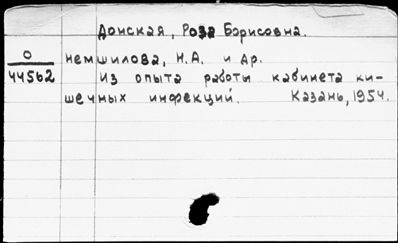 Донская, Роза Борисовна.
О
44562
Немшилова, Н.А. и др.
Из опыта работы кабинета ки-
шечных инфекций. Казань, 1954.